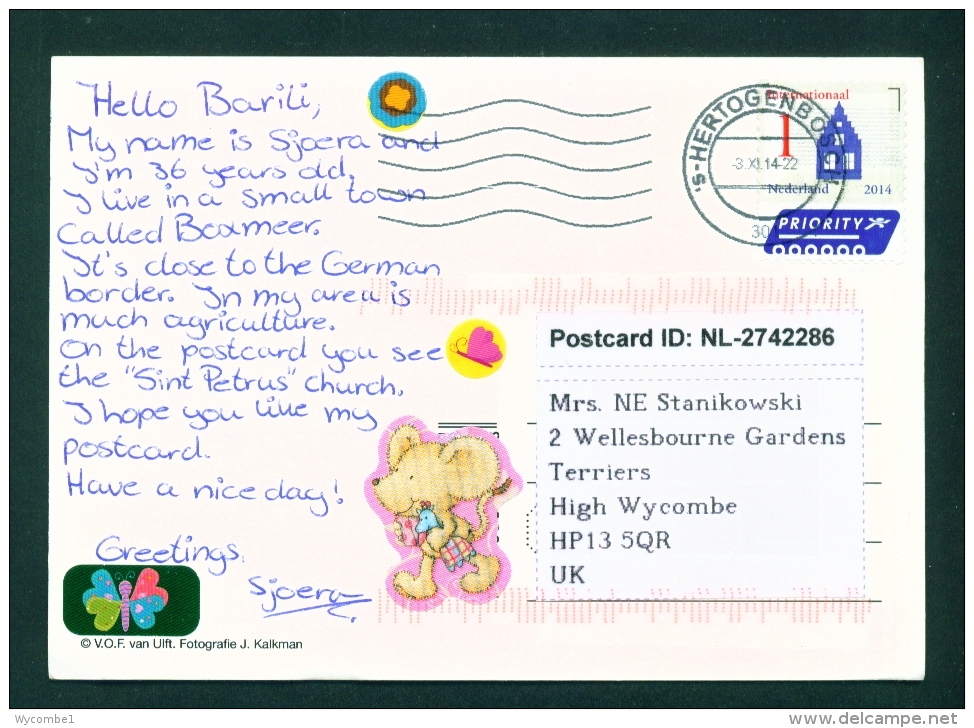 Hello Barili,
My name is Sjoera and
I'm 36 years old.
I live in a small town
called Boxmeer.
It's close to the German
border. In my area is
much agriculture.
On the postcard you see
the "Sint Petrus" church.
I hope you like my
postcard.
Have a nice day!
Greetings,
Sjoera
© V.O.F. van Ulft. Fotografie J. Kalkman
's-HERTOGENBOSCH
-3.XI.14-22
30
Internationaal
1
Nederland 2014
PRIORITY
Postcard ID: NL-2742286
Mrs. NE Stanikowski
2 Wellesbourne Gardens
Terriers
High Wycombe
HP13 5QR
UK
Wycombe1
www.delcampe.net